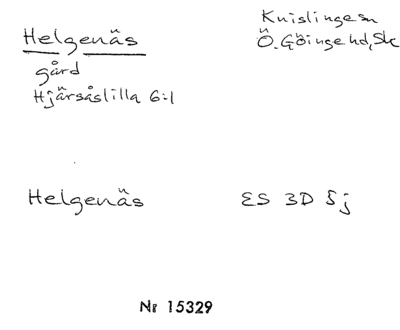 Helgenäs
Knislinge sn
Ö. Göinge hd, Sk
gård
Hjärsåslilla 6:1
Helgenäs ES 3D 5j
Nr 15329